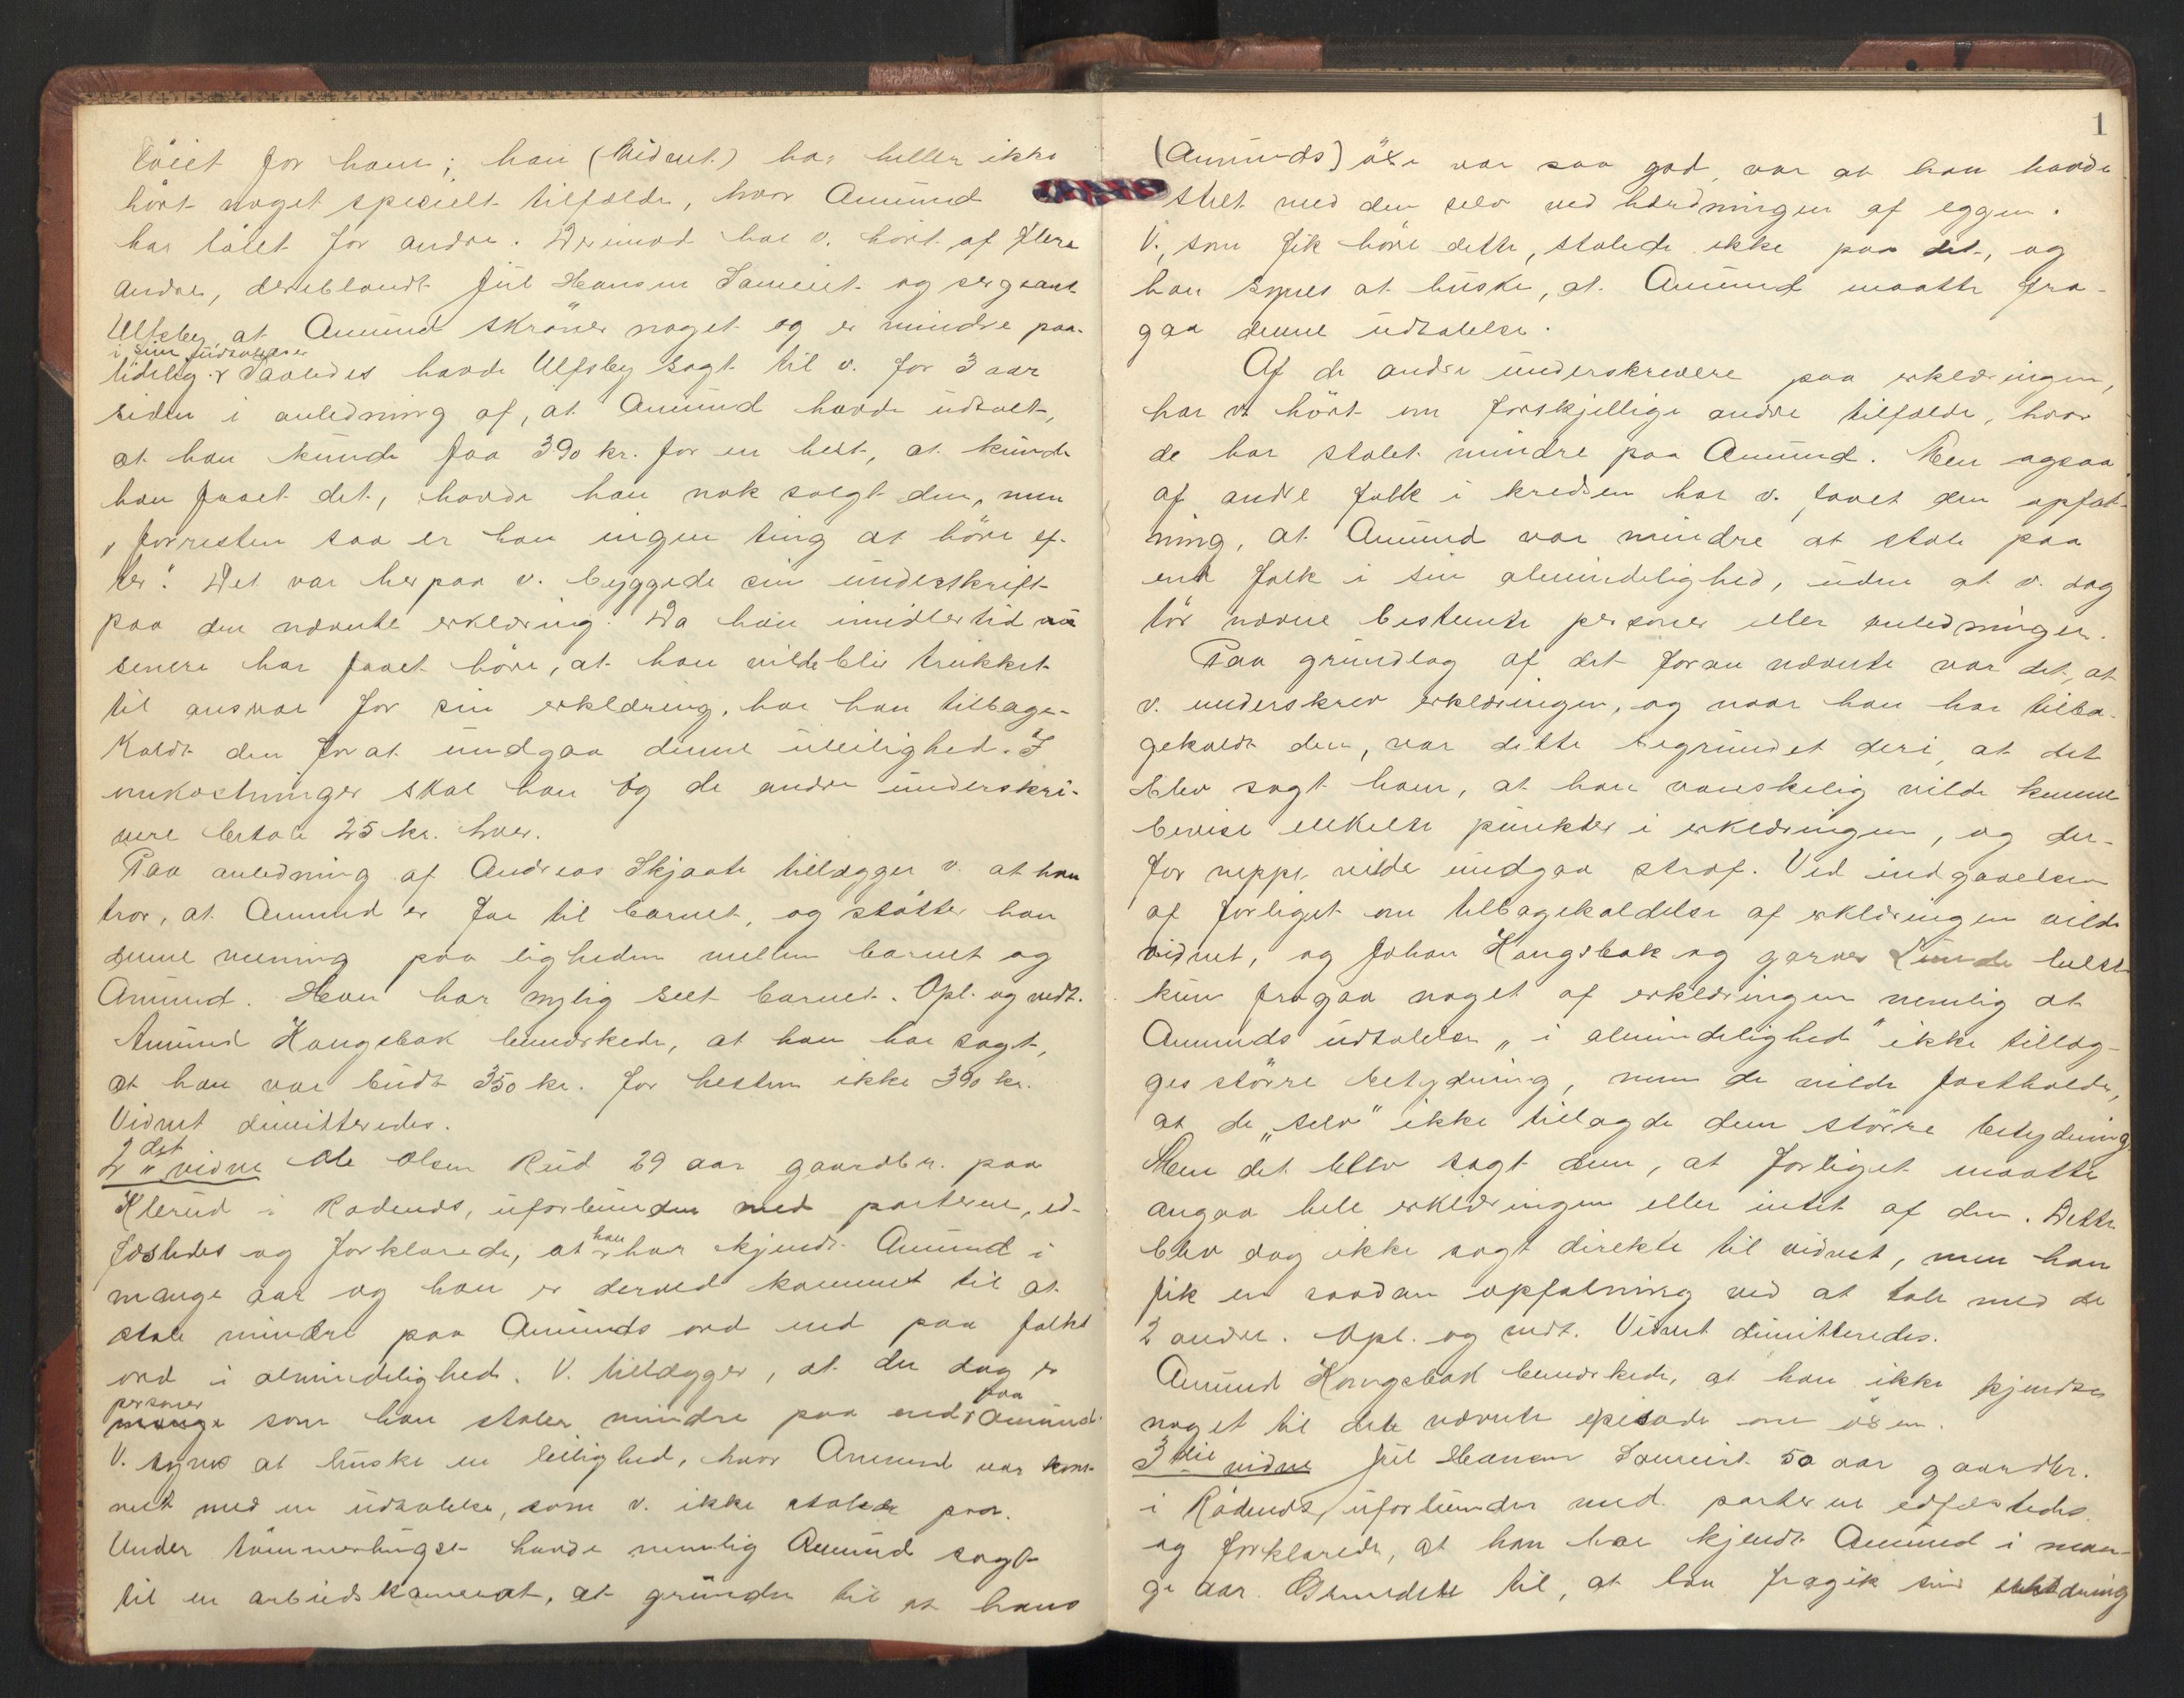 löiet for ham; han (Vidnet) har heller ikke
hört noget specielt tilfælde, hvor Amund
har löiet for andre. Derimod har v. hört af flere
andre, deriblandt Jul Hansen Sameiet og sergeant
Ulfsby, at Amund skröner noget og er mindre paa-
i sine udtalelser
lidelig. Saaledes havde Ulfsby sagt til v. for 3 aar
siden i anledning af, at Amund havde udtalt,
at han kunde faa 390 kr. for en hest, at kunde
han faaet det, havde han nok solgt den, men
„forresten saa er han ingen ting at höre ef-
ter." Det var herpaa v. byggede sin underskrift
paa den nævnte erklæring. Da han imidlertid nu
senere har faaet höre, at han vilde bliv trukket
til ansvar for sin erklæring, har han tilbage-
kaldt den for at undgaa denne uleilighed. I
omkostninger skal han og de andre underskri-
vere betale 25 kr. hver.
Paa anledning af Andreas Skjaate tillægger v. at han
tror, at Amund er far til barnet, og stötter han
denne mening paa ligheden mellem barnet og
Amund. Han har nylig seet barnet. Opl. og vedt.
Amund Kongsbak bemærkede, at han har sagt,
at han var budt 350 kr. for hesten ikke 390 kr.
Vidnet dimitteredes.
2det vidne Ole Olsen Rud 29 aar gaardbr. paa
Klerud i Rödenæs, uforbunden med parterne, ed-
fæstedes og forklarede, at han har kjendt Amund i
mange aar og han er derved kommet til at
stole mindre paa Amunds ord end paa folks
ord i almindelighed. V. tillægger, at der dog er
personer paa
mange som han stoler mindre paa end Amund.
V. synes at huske en leilighed, hvor Amund var kom-
met med en udtalelse, som v. ikke stolede paa.
Under tömmerhugst havde nemlig Amund sagt
til en arbeidskamerat, at grunden til at hans
1
(Amunds) öxe var saa god, var at han havde
stelt med den selv ved hærdningen af eggen.
V., som fik höre dette, stolede ikke paa det, og
han synes at huske, at Amund maatte fra-
gaa denne udtalelse.
Af de andre underskrevere paa erklæringen,
har v. hört om forskjellige andre tilfælde, hvor
de har stolet mindre paa Amund. Men ogsaa
af andre folk i kredsen har v. faaet den opfat-
ning, at Amund var mindre at stole paa
end folk i sin almindelighed, uden at v. dog
tör nævne bestemte personer eller anledninger.
Paa grundlag af det foran nævnte var det, at
v. underskrev erklæringen, og naar han har tilba-
gekaldt den, var dette begrundet deri, at det
blev sagt ham, at han vanskelig vilde kunne
bevise enkelte punkter i erklæringen, og der-
for neppe vilde undgaa straf. Ved indgaaelsen
af forliget om tilbagekaldelse af erklæringen vilde
vidnet, og Johan Kongsbak og garver Lunde helst
kun fragaa noget af erklæringen nemlig at
Amunds udtalelse „i almindelighed" ikke tillæg-
ges större betydning, men de vilde fastholde,
at de „selv" ikke tillagde dem större betydning.
Men det blev sagt dem, at forliget maatte
angaa hele erklæringen eller intet af den. Dette
blev dog ikke sagt direkte til vidnet, men han
fik en saadan opfatning ved at tale med de
2 andre. Opl. og vedt. Vidnet dimitteredes.
Amund Kongsbak bemærkede, at han ikke kjendte
noget til den nævnte episode om öxen.
3die vidne Jul Hansen Sameiet 50 aar gaardbr.
i Rödenæs, uforbunden med parterne edfæstedes
og forklarede, at han har kjendt Amund i man-
ge aar. til, at han fragik sin